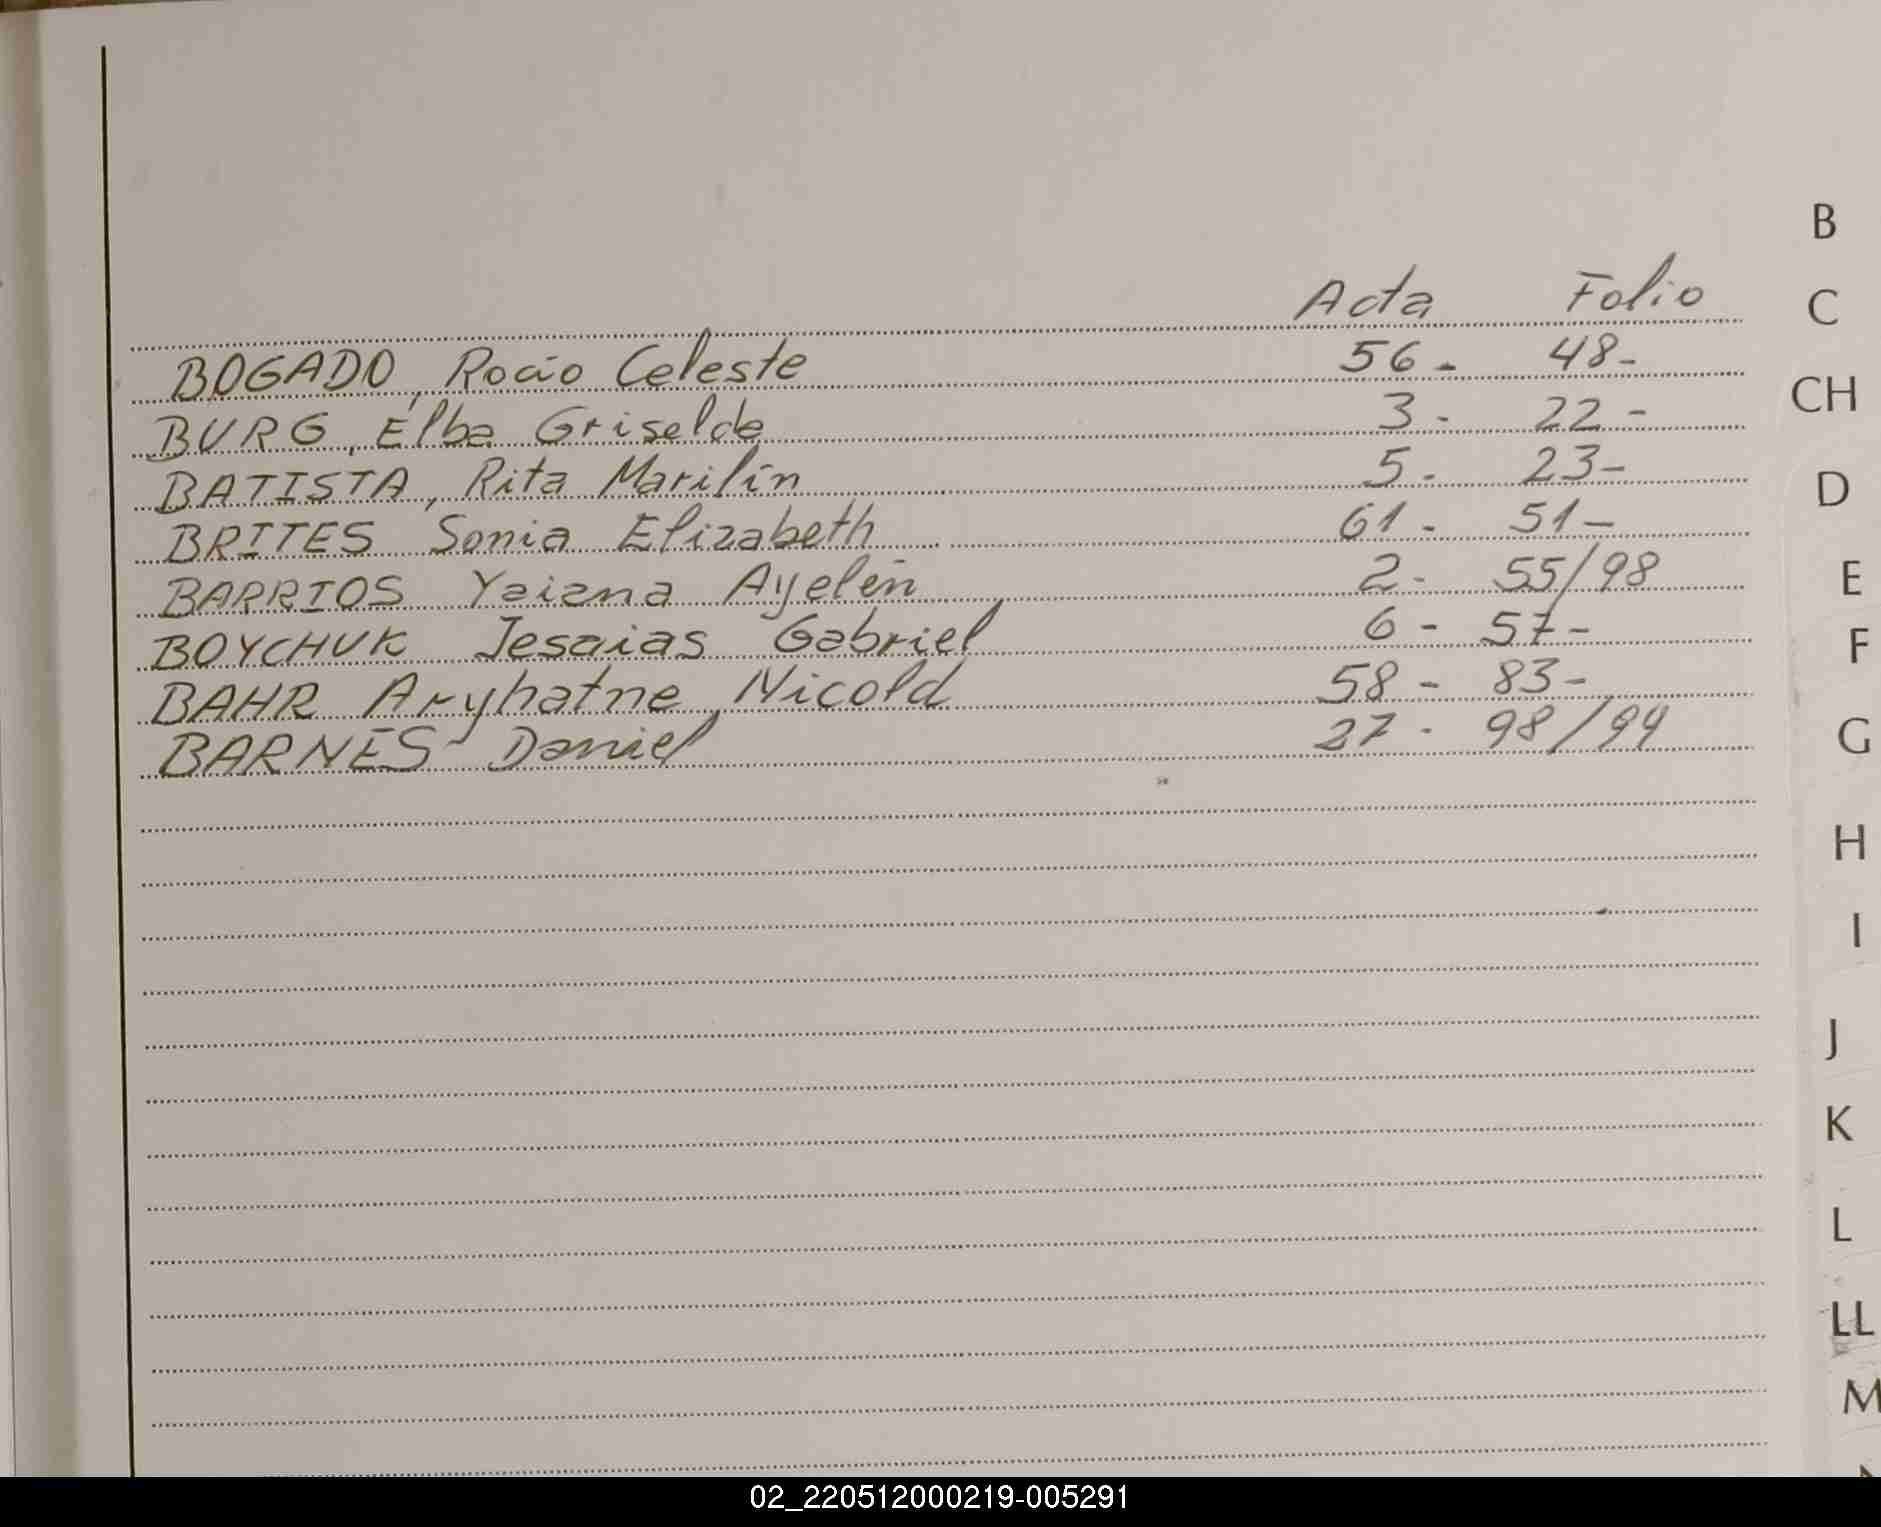 Acta Folio
BOGADO, Rocío Celeste 56- 48-
BURG, Elba Griselda 3- 22-
BATISTA, Rita Marilín 5- 23-
BRITES Sonia Elizabeth 61- 51-
BARRIOS Yaiana Ayelén 2- 55/98
BOYCHUK Jesaias Gabriel 6- 57-
BAHR Aryhatne Nicold 58- 83-
BARNES Daniel 27- 98/99
B
C
CH
D
E
F
G
H
I
J
K
L
LL
M
02_220512000219-005291